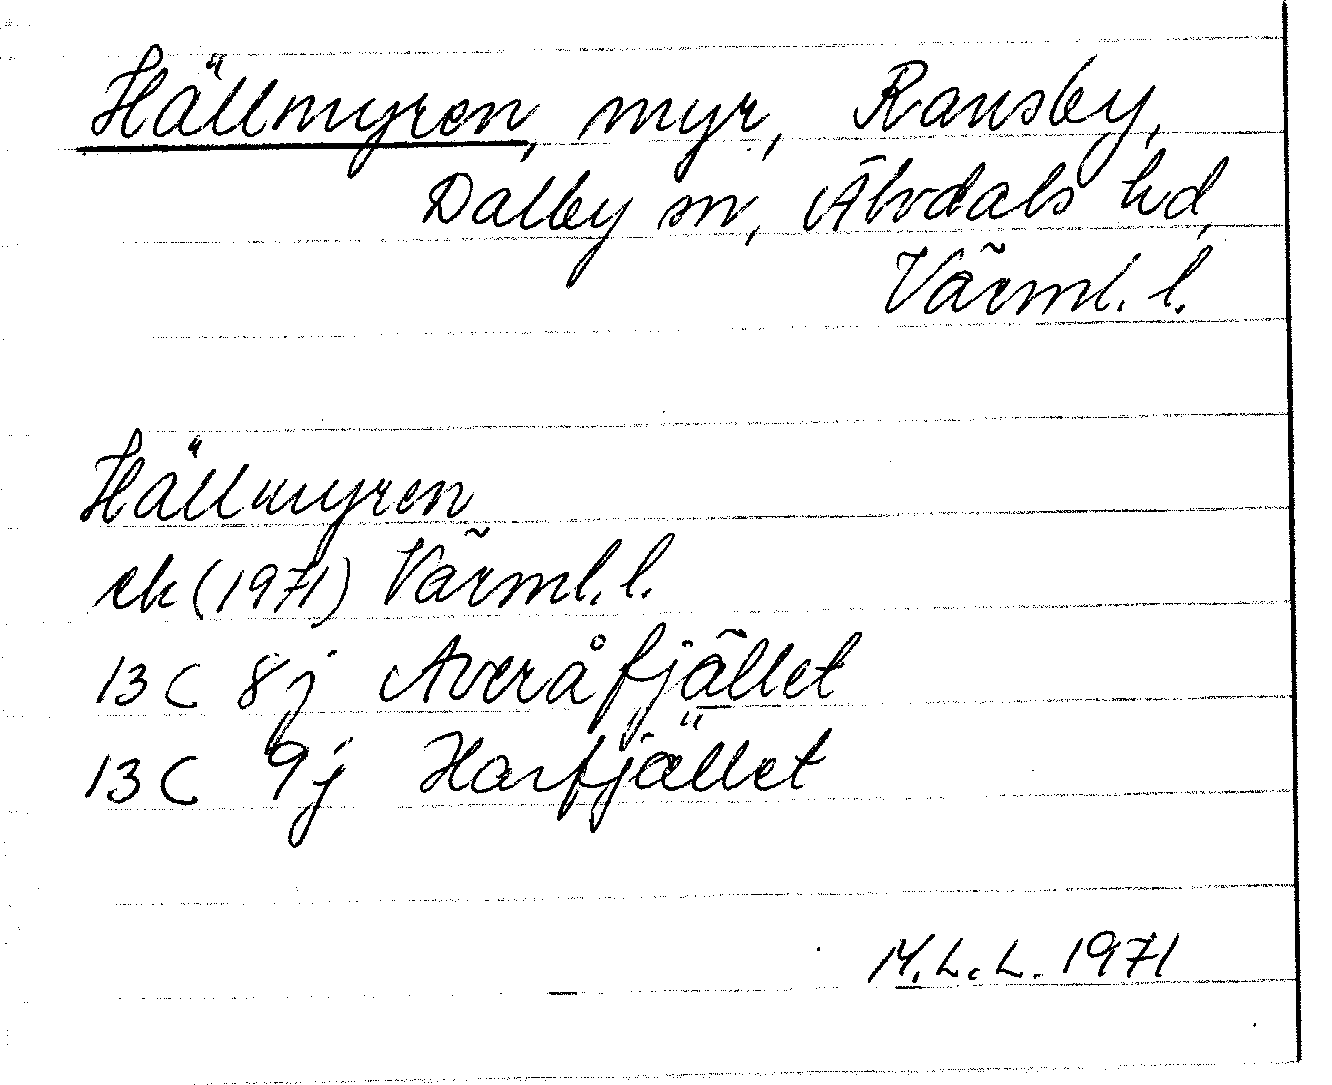 Hällmyren, myr, Ransby,
Dalby sn, Älvdals hd,
Värml. l.
Hällmyren
ek (1971) Värml. l.
13 C 8j Averåfjället
13 C 9j Harfjället
M.L.L. 1971